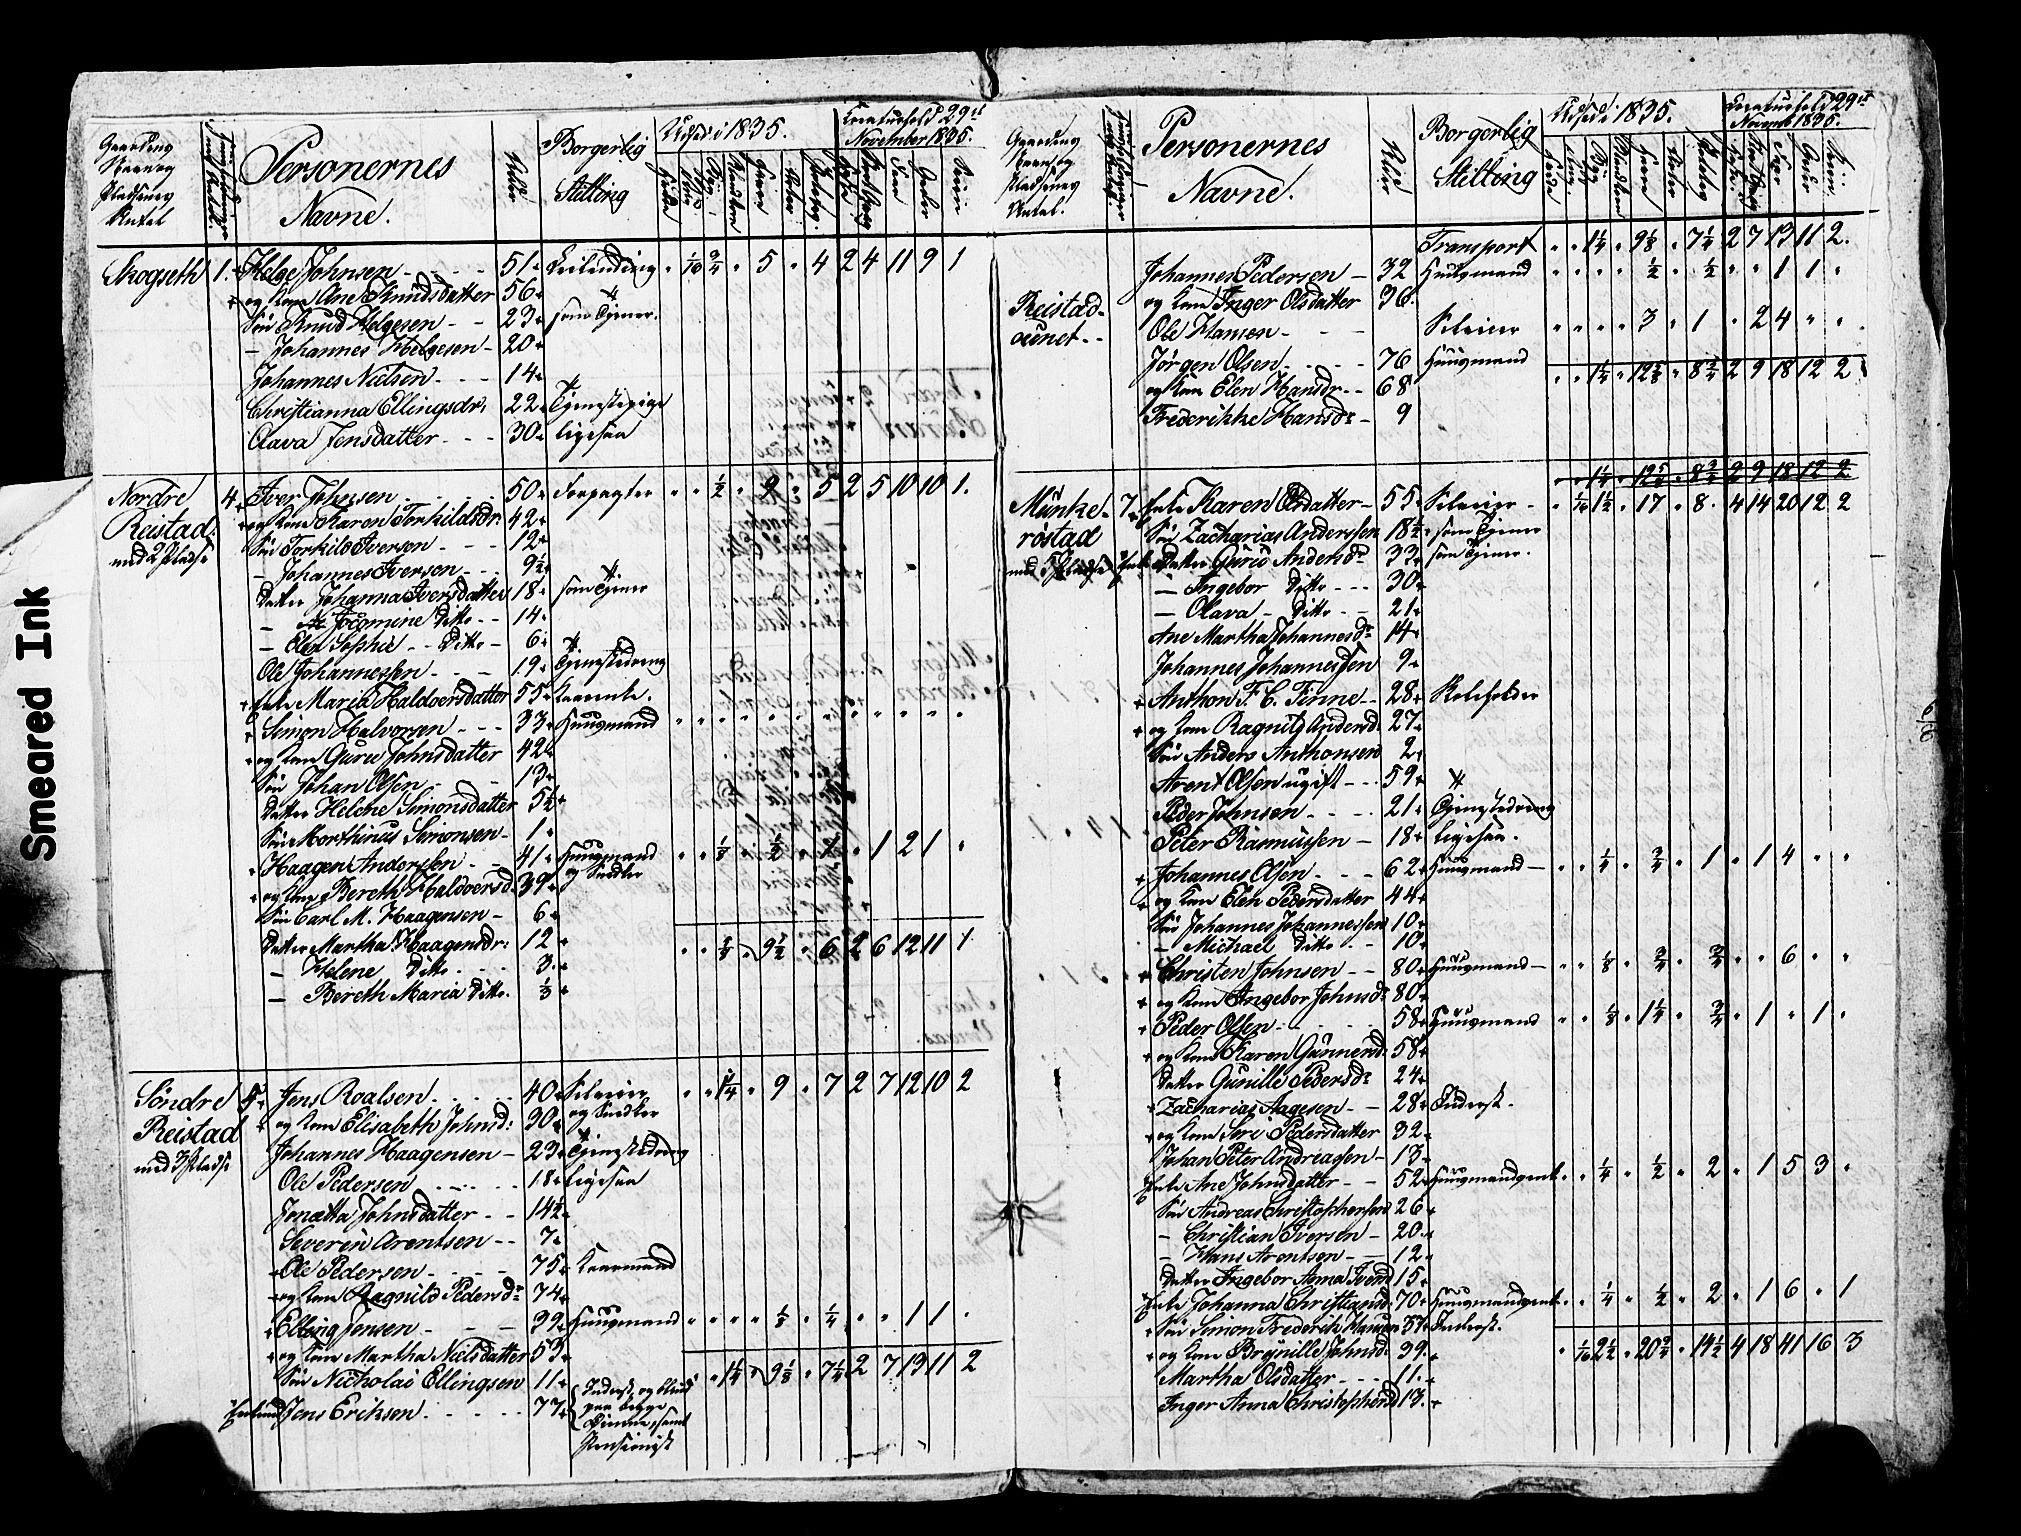 Smeared Ink
Gaardens Navn og Pladsenes Antal
Personernes Navne.
Alder
Borgerlig Stilling
Udsæd i 1835.
Creaturhold 29de November 1835.
Skogseth 1. Helge Johnsen 51 Leilending 1/16 5 4 2 4 11 9 1
og Kone Ane Knudsdatter 56
Søn Knud Helgesen 23 som Tjener.
Johannes Helgesen 20
Johannes Nielsen 14
Christianna Ellingsdr: 22 Tjenestepige
Olava Jensdatter 30 ligesaa
Nordre Reistad med 2 Pladse 4 Iver Johnsen 50 Forpagter 1/2 9 5 2 5 10 10 1.
og Kone Karen Torkildsdr: 42
Søn Torkild Iversen 12
Johannes Iversen 9½
Datter Johanna Iversdatter 18 som Tjener
Jocomine Ditto 14
Elen Sophie Ditto 6
Ole Johannessen 19 Tjenestedreng
Enke Maria Haldvorsdatter 55 Kaarenke.
Simon Halvorsen 33 Huusmand
og Kone Guru Johnsdatter 42
Søn Johan Olsen 13
Datter Helene Simonsdatter 5½
Søn Morthinus Simonsen 1
Haagen Anderssen 41 Huusmand og Snedker 1/8 1/2 1 1 2 1
og Kone Bereth Haldvorsd. 39
Søn Carl M. Haagensen 6
Datter Martha Haagensdr: 12 9½ 6 2 6 12 11 1
Helene Ditto 3
Bereth Maria Ditto. 1/3
Søndre Reistad med 3 Pladse 5 Jens Roalsen 40 Selveier og Snedker 1¼ 9 7 2 7 12 10 2
og Kone Elisabeth Johnsd: 30
Johannes Haagensen 23 Tjenestedreng
Ole Pedersen 18 ligesaa
Jonetta Johnsdatter 14½
Severen Arentsen 7
Ole Pedersen 75 Kaarmand
og Kone Ragnild Pedersdr 74
Elling Jensen 39 Huusmand 1/8 1/4 1 1
og Kone Martha Nielsdatter 53
Søn Nicholai Ellingsen 11 1¼ 9⅛ 7¼ 2 7 13 11 2
Enkemand Jens Eriksen 77 Inderst og blind paa begge Øinene, samt Pensionist
Gaardens Navn og Pladsenes Antal.
Personernes Navne.
Alder
Borgerlig Stilling
Udsæd i 1835.
Creaturhold 29de Novemb 1835.
Transport 1¼ 9⅛ 7¼ 2 7 13 11 2.
Johannes Pedersen 32 Huusmand 1/2 1/2 1 1
Reistadounet og Kone Inger Olsdatter 36
Ole Hansen Selveier 3 1 2 4
Jørgen Olsen 76 Huusmand
og Kone Elen Hansdr 68 1¼ 12⅝ 8¾ 2 9 18 12 2
Frederikke Hansdr 9
1¼ 12⅝ 8¾ 2 9 18 12 2
Munkerøstad med 5 Pladse 7 Enke Karen Olsdatter 55 Selveier 1/16 1½ 17 8 4 14 20 12 2
Søn Zacharias Anderssen 18½ som Tjener
Datter Guruo Andersdr 33 som Tjener.
Ingebor Ditto 30
Olava Ditto 21
Ane Martha Johannesdr 14
Johannes Johannessen 9
Anthon F. C. Finne 28
og Kone Ragnild Andersd: 27
Søn Anders Anthonsen 2
Arent Olsen ugift 59
Peder Johnsen 21 Tjenestedreng
Peter Rasmussen 18 ligesaa.
Johannes Olsen 62 Huusmand 1/4 3/4 1 1 4
og Kone Elen Pedersdatter 44
Søn Johannes Johannessen 10
Michael Ditto 10
Christen Johnsen 80 Huusmand 1/8 3/4 3/4 6
og Kone Ingebor Johnsdr 80
Peder Olsen 58 Huusmand 1/8 1¼ 3/4 1 1
og Kone Karen Gunnersd: 58
Datter Gunille Pedersdr 24
Zacharias Aagesen 28 Inderst.
og Kone Seri Pedersdatter 32
Johan Peter Andreassen 13
Enke Ane Johnsdatter 52 Huusmandsenk. 1/4 1/2 2 1 5 3
Søn Andreas Christophersen 26
Christian Iversen 20
Hans Arentsen 12
Datter Ingebor Anna Iversd 15
Enke Johanna Christiansd: 70 Huusmandsenk. 1/4 1/2 2 1 6 1
Søn Simon Frederik Hansen 37 Inderst.
og Kone Brynille Johnsd: 39 1/16 2½ 20¾ 14½ 4 18 41 16 3
Martha Olsdatter 11
Inger Anna Christophersd 13